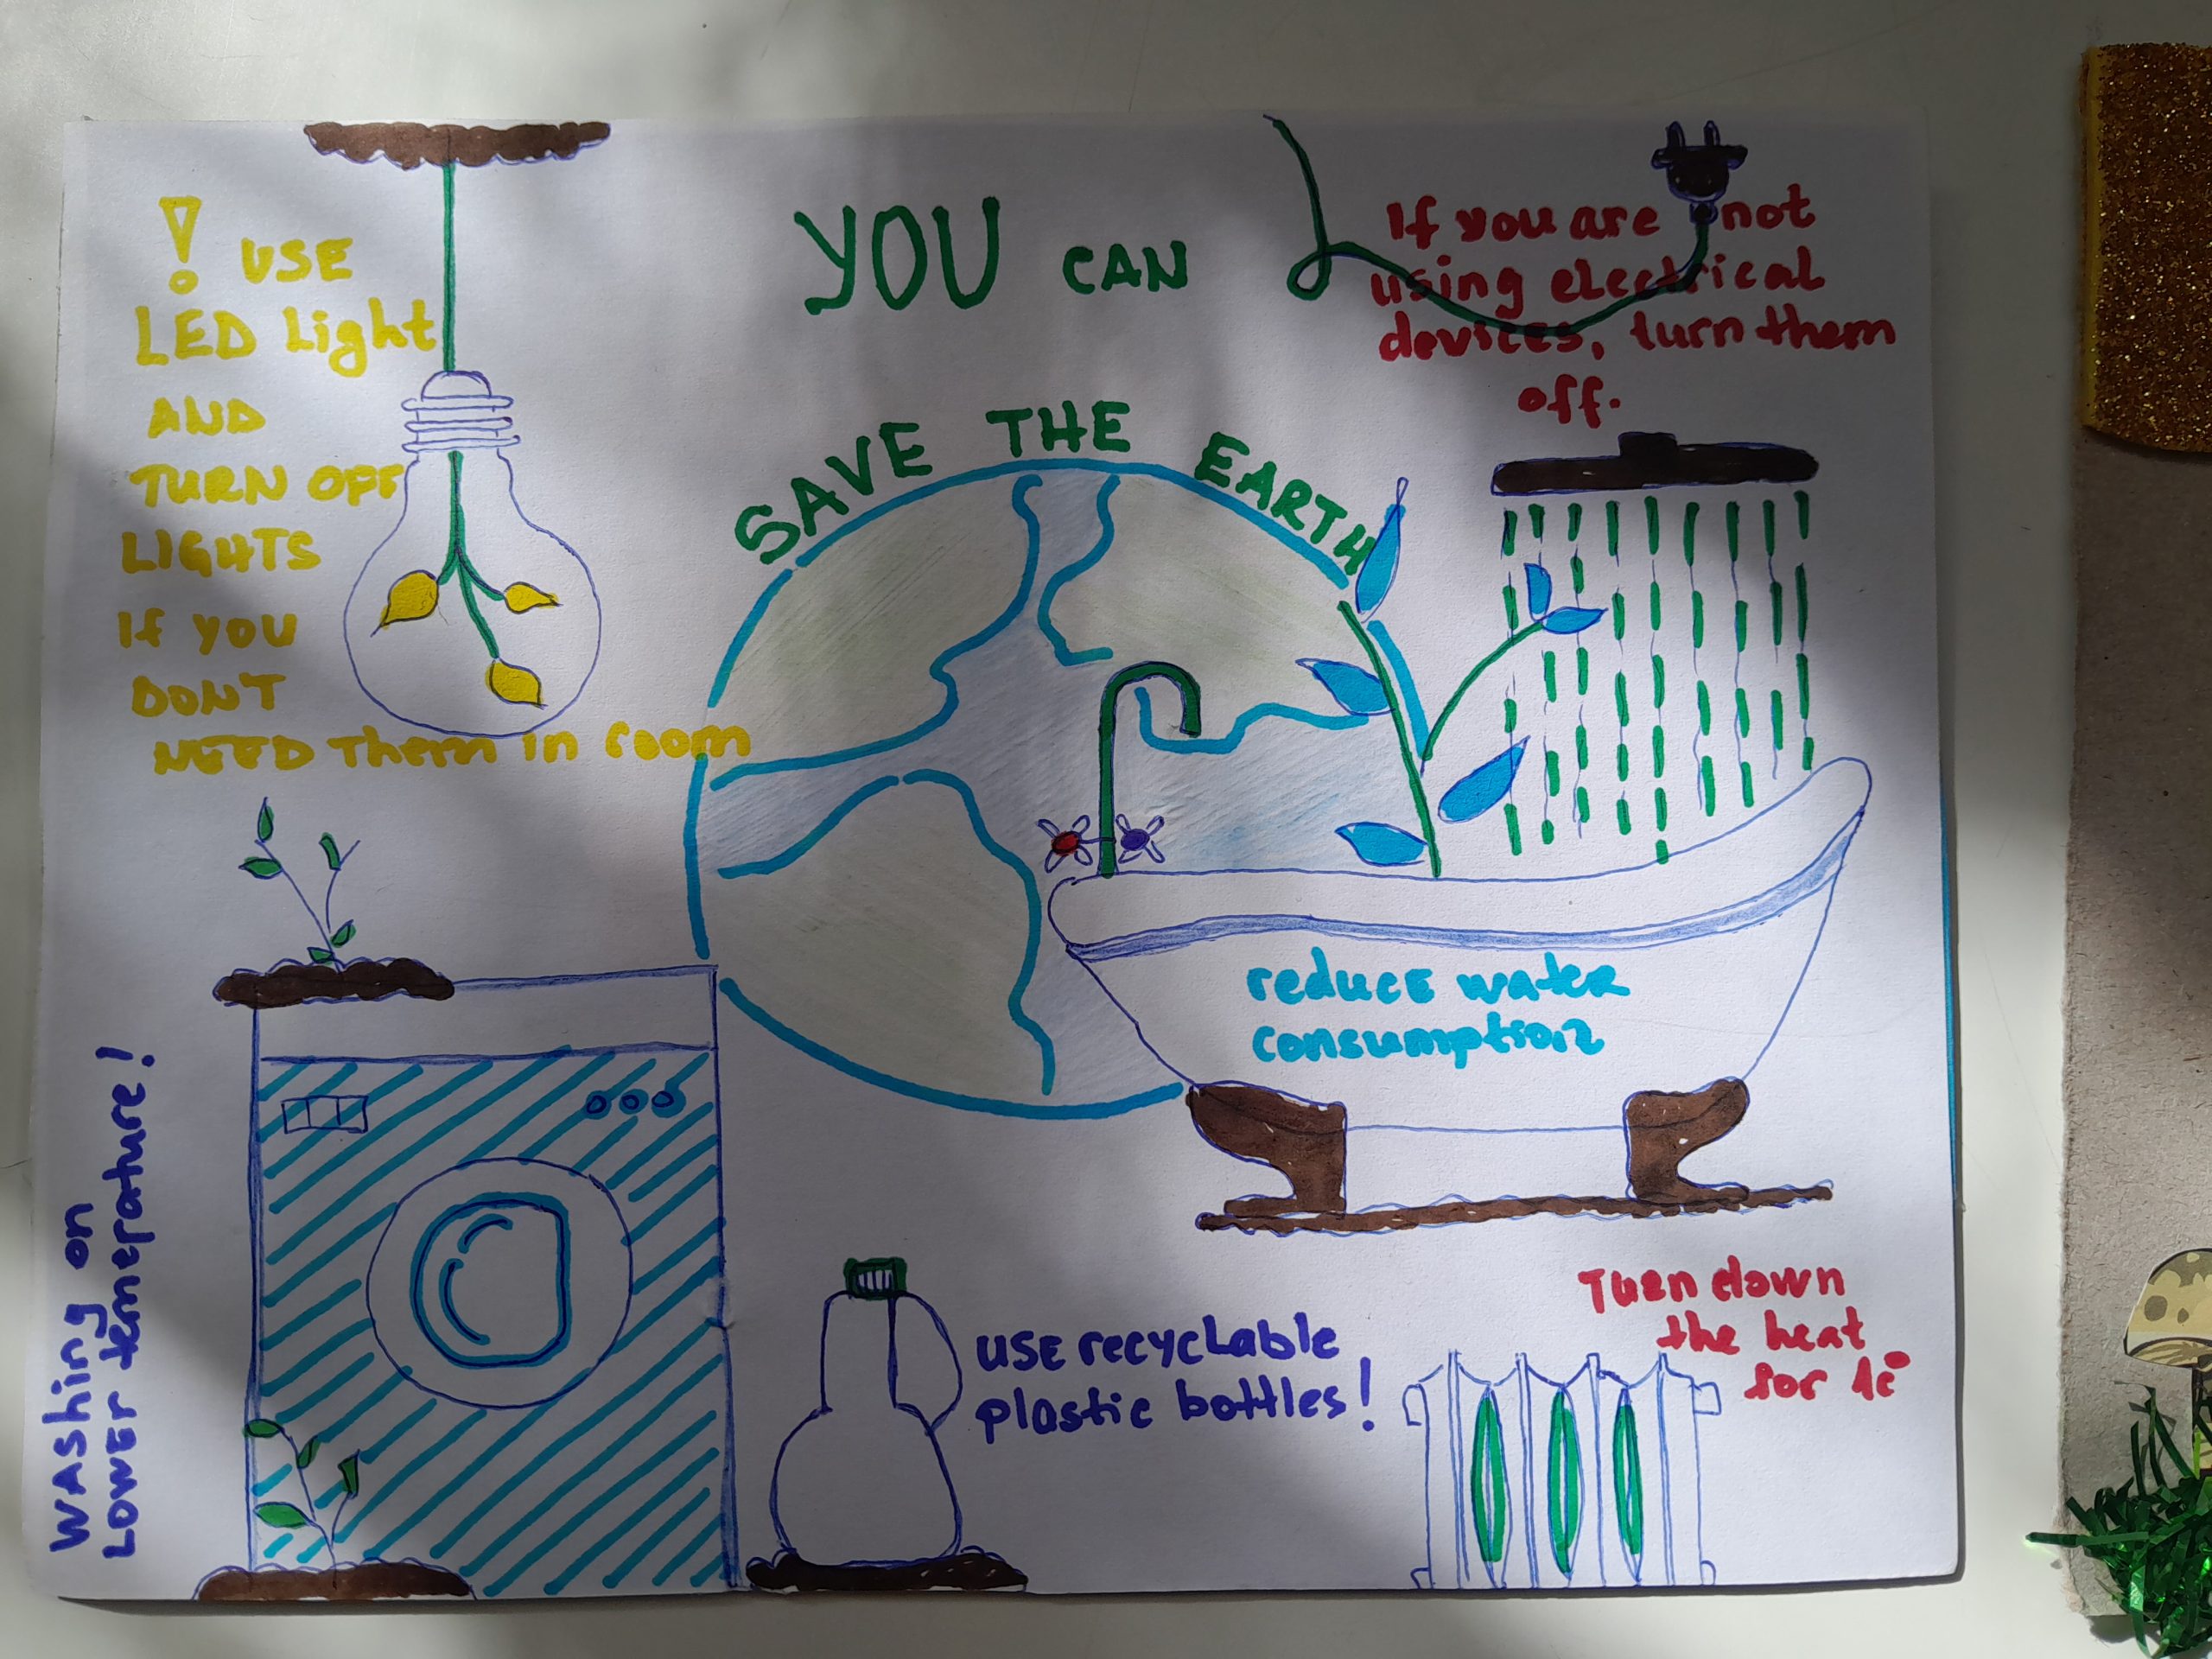 YOU CAN
SAVE THE EARTH
! USE
LED Light
AND
TURN OFF
LIGHTS
If you
DON'T
NEED Them in room
If you are not
using electrical
devices, turn them
off.
reduce water
consumption
WAShing on
LOWER temeprature!
USE recyclable
plastic bottles!
Turn down
the heat
for 1c°